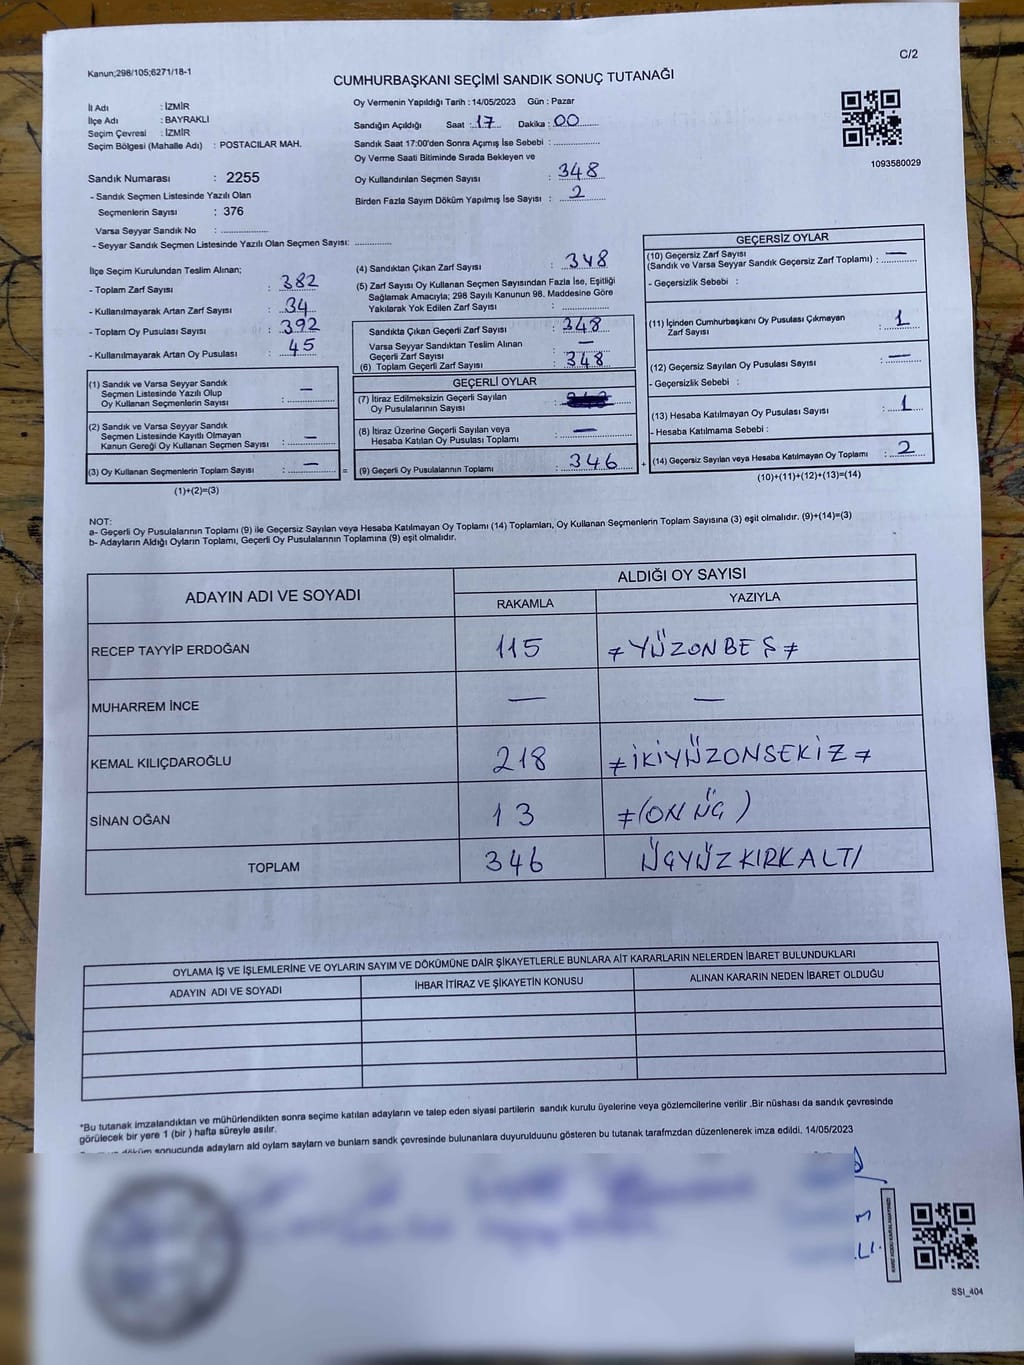 Kanun;298/105;6271/18-1
C/2
CUMHURBAŞKANI SEÇİMİ SANDIK SONUÇ TUTANAĞI
İl Adı : İZMİR
İlçe Adı : BAYRAKLI
Seçim Çevresi : İZMİR
Seçim Bölgesi (Mahalle Adı) : POSTACILAR MAH.
Sandık Numarası : 2255
- Sandık Seçmen Listesinde Yazılı Olan
Seçmenlerin Sayısı : 376
Varsa Seyyar Sandık No : ..............
- Seyyar Sandık Seçmen Listesinde Yazılı Olan Seçmen Sayısı: ..............
Oy Vermenin Yapıldığı Tarih : 14/05/2023 Gün : Pazar
Sandığın Açıldığı Saat : 17 Dakika : 00
Sandık Saat 17:00'den Sonra Açımış İse Sebebi : ..............
Oy Verme Saati Bitiminde Sırada Bekleyen ve
Oy Kullandırılan Seçmen Sayısı : 348
Birden Fazla Sayım Döküm Yapılmış İse Sayısı : 2
1093580029
İlçe Seçim Kurulundan Teslim Alınan;
- Toplam Zarf Sayısı : 382
- Kullanılmayarak Artan Zarf Sayısı : 34
- Toplam Oy Pusulası Sayısı : 392
- Kullanılmayarak Artan Oy Pusulası : 45
(1) Sandık ve Varsa Seyyar Sandık
Seçmen Listesinde Yazılı Olup
Oy Kullanan Seçmenlerin Sayısı : —
(2) Sandık ve Varsa Seyyar Sandık
Seçmen Listesinde Kayıtlı Olmayan
Kanun Gereği Oy Kullanan Seçmen Sayısı : —
(3) Oy Kullanan Seçmenlerin Toplam Sayısı : — =
(1)+(2)=(3)
(4) Sandıktan Çıkan Zarf Sayısı : 348
(5) Zarf Sayısı Oy Kullanan Seçmen Sayısından Fazla İse, Eşitliği
Sağlamak Amacıyla; 298 Sayılı Kanunun 98. Maddesine Göre
Yakılarak Yok Edilen Zarf Sayısı : ..............
Sandıkta Çıkan Geçerli Zarf Sayısı : 348
Varsa Seyyar Sandıktan Teslim Alınan
Geçerli Zarf Sayısı : —
(6) Toplam Geçerli Zarf Sayısı : 348
GEÇERLİ OYLAR
(7) İtiraz Edilmeksizin Geçerli Sayılan
Oy Pusulalarının Sayısı :
(8) İtiraz Üzerine Geçerli Sayılan veya
Hesaba Katılan Oy Pusulası Toplamı : —
(9) Geçerli Oy Pusulalarının Toplamı : 346 +
GEÇERSİZ OYLAR
(10) Geçersiz Zarf Sayısı
(Sandık ve Varsa Seyyar Sandık Geçersiz Zarf Toplamı) : —
- Geçersizlik Sebebi :
(11) İçinden Cumhurbaşkanı Oy Pusulası Çıkmayan
Zarf Sayısı : 1
(12) Geçersiz Sayılan Oy Pusulası Sayısı : —
- Geçersizlik Sebebi :
(13) Hesaba Katılmayan Oy Pusulası Sayısı : 1
- Hesaba Katılmama Sebebi :
(14) Geçersiz Sayılan veya Hesaba Katılmayan Oy Toplamı : 2
(10)+(11)+(12)+(13)=(14)
NOT:
a- Geçerli Oy Pusulalarının Toplamı (9) ile Geçersiz Sayılan veya Hesaba Katılmayan Oy Toplamı (14) Toplamları, Oy Kullanan Seçmenlerin Toplam Sayısına (3) eşit olmalıdır. (9)+(14)=(3)
b- Adayların Aldığı Oyların Toplamı, Geçerli Oy Pusulalarının Toplamına (9) eşit olmalıdır.
ADAYIN ADI VE SOYADI
ALDIĞI OY SAYISI
RAKAMLA YAZIYLA
RECEP TAYYİP ERDOĞAN 115 ≠YÜZONBEŞ≠
MUHARREM İNCE — —
KEMAL KILIÇDAROĞLU 218 ≠İKİYÜZONSEKİZ≠
SİNAN OĞAN 13 ≠(ON ÜÇ)
TOPLAM 346 ÜÇYÜZKIRKALTI
OYLAMA İŞ VE İŞLEMLERİNE VE OYLARIN SAYIM VE DÖKÜMÜNE DAİR ŞİKAYETLERLE BUNLARA AİT KARARLARIN NELERDEN İBARET BULUNDUKLARI
ADAYIN ADI VE SOYADI İHBAR İTİRAZ VE ŞİKAYETİN KONUSU ALINAN KARARIN NEDEN İBARET OLDUĞU
*Bu tutanak imzalandıktan ve mühürlendikten sonra seçime katılan adayların ve talep eden siyasi partilerin sandık kurulu üyelerine veya gözlemcilerine verilir .Bir nüshası da sandık çevresinde
görülecek bir yere 1 (bir ) hafta süreyle asılır.
döküm sonucunda adayların ald oyların sayların ve bunlam sandık çevresinde bulunanlara duyurulduunu gösteren bu tutanak tarafmzdan düzenlenerek imza edildi. 14/05/2023
SSI_404